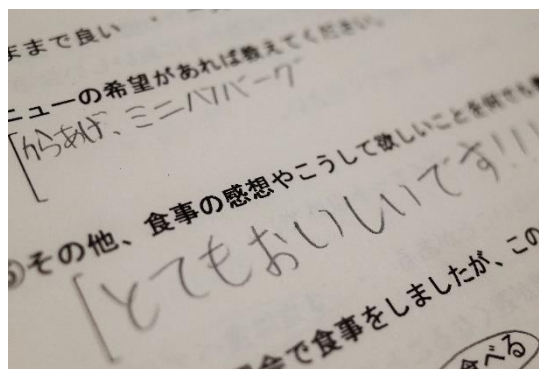 ままで良い
ニューの希望があれば教えてください。
からあげ、ミニハンバーグ
その他、食事の感想やこうして欲しいことを何でも
とてもおいしいです!!!
で食事をしましたが、この
食べる